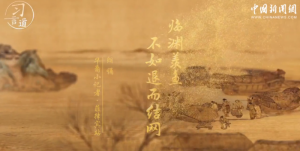 习言道
中国新闻网
WWW.CHINANEWS.COM
临渊羡鱼
不如退而结网